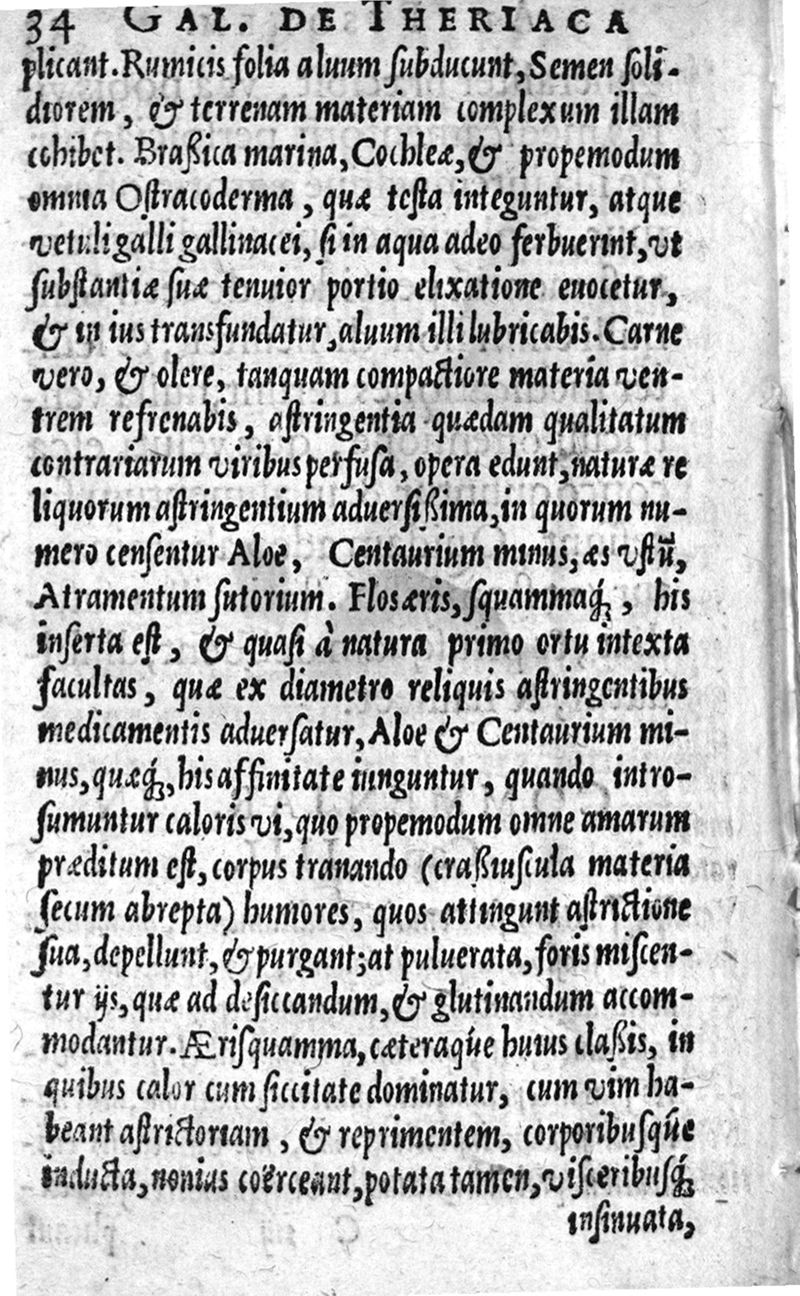 34 GAL. DE THERIACA
plicant. Rumicis folia aluum ſubducunt, Semen ſoli-
diorem, & terrenam materiam complexum illam
cohibet. Braßica marina, Cochleæ, & propemodum
omnia Oſtracoderma, quæ teſta integuntur, atque
vetuli galli gallinacei, ſi in aqua adeo ferbuerint, vt
ſubſtantiæ ſuæ tenuior portio elixatione euocetur,
& in ius transfundatur, aluum illi lubricabis. Carne
vero, & olere, tanquam compactiore materia ven-
trem refrenabis, aſtringentia quædam qualitatum
contrariarum viribus perfuſa, opera edunt, naturæ re
liquorum aſtringentium aduerſißima, in quorum nu-
mero cenſentur Aloe, Centaurium minus, æs vſtũ,
Atramentum ſutorium. Flos æris, ſquammaq́;, his
inſerta eſt, & quaſi à natura primo ortu intexta
facultas, quæ ex diametro reliquis aſtringentibus
medicamentis aduerſatur, Aloe & Centaurium mi-
nus, quæq́;, his affinitate iunguntur, quando intro-
ſumuntur caloris vi, quo propemodum omne amarum
præditum eſt, corpus tranando (craßiuſcula materia
ſecum abrepta) humores, quos attingunt aſtrictione
ſua, depellunt, & purgant; at puluerata, foris miſcen-
tur ijs, quæ ad deſiccandum, & glutinandum accom-
modantur. Æris ſquamma, cæteraq́ue huius claßis, in
quibus calor cum ſiccitate dominatur, cum vim ha-
beant aſtrictoriam, & reprimentem, corporibuſq́ue
inducta, nonias coërceant, potata tamen, viſceribuſq́;
inſinuata,